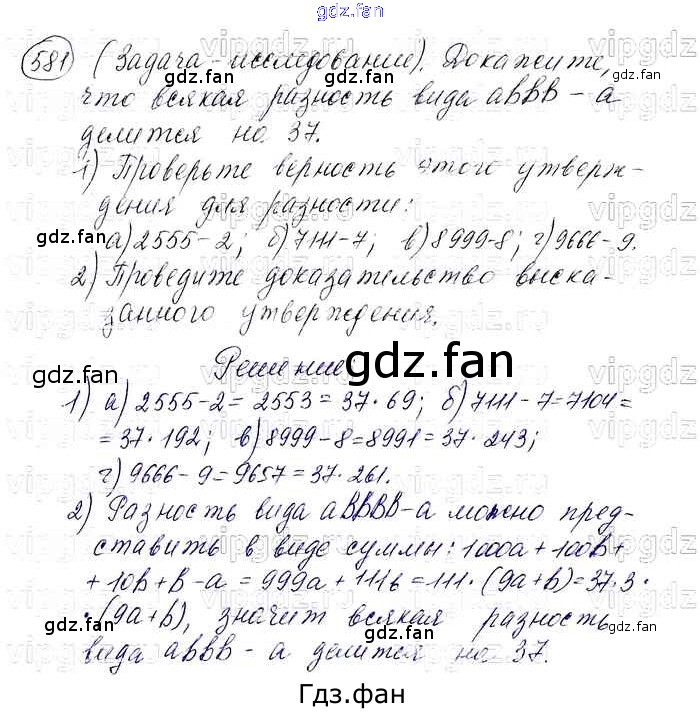 gdz.fan
581 (Задача-исследование). Докажите,
что всякая разность вида aBBB - a
делится на 37.
1) Проверьте верность этого утверж-
дения для разности:
а) 2555-2; б) 7111-7; в) 8999-8; г) 9666-9.
2) Проведите доказательство выска-
занного утверждения.
Решение
1) а) 2555-2 = 2553 = 37·69; б) 7111-7=7104=
= 37·192; в) 8999-8=8991=37·243;
г) 9666-9=9657=37·261.
2) Разность вида aBBBB-a можно пред-
ставить в виде суммы: 1000a+100b+
+10b+b-a=999a+111b=111·(9a+b)=37·3·
·(9a+b), значит всякая разность
вида aBBB-a делится на 37.
Гдз.фан